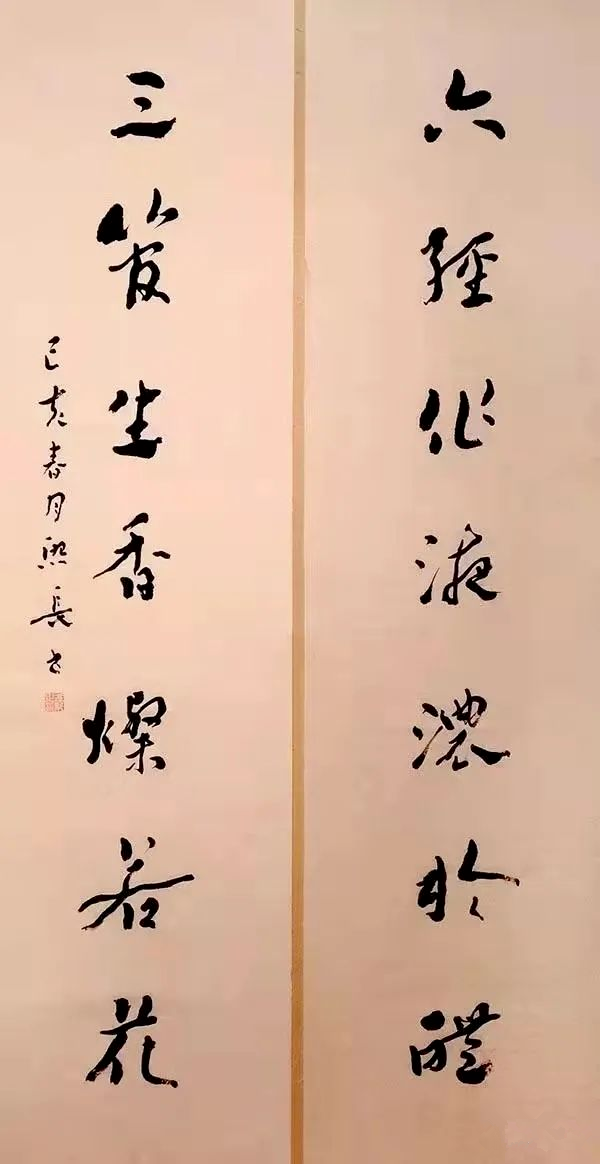 六經作液濃於醴
三生香燦若花
己亥春月熙長书